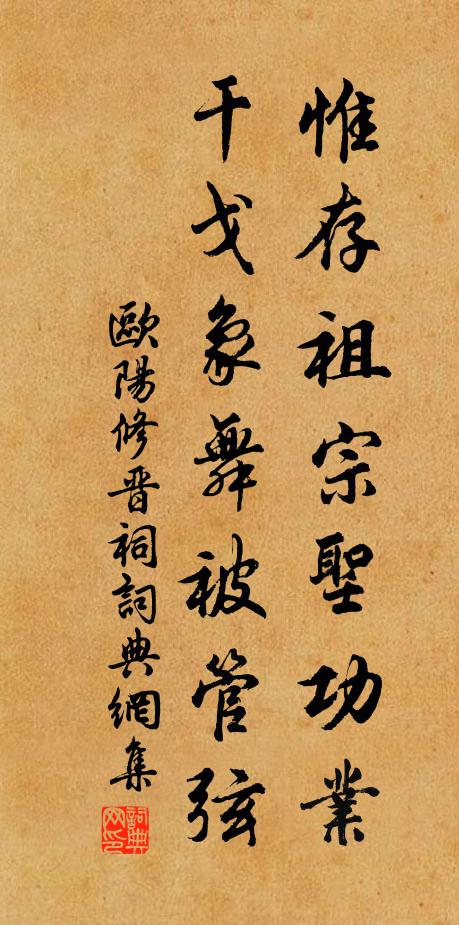 惟存祖宗聖功業
干戈象舞被管弦
歐陽修晋祠詞典網集
詞典网印